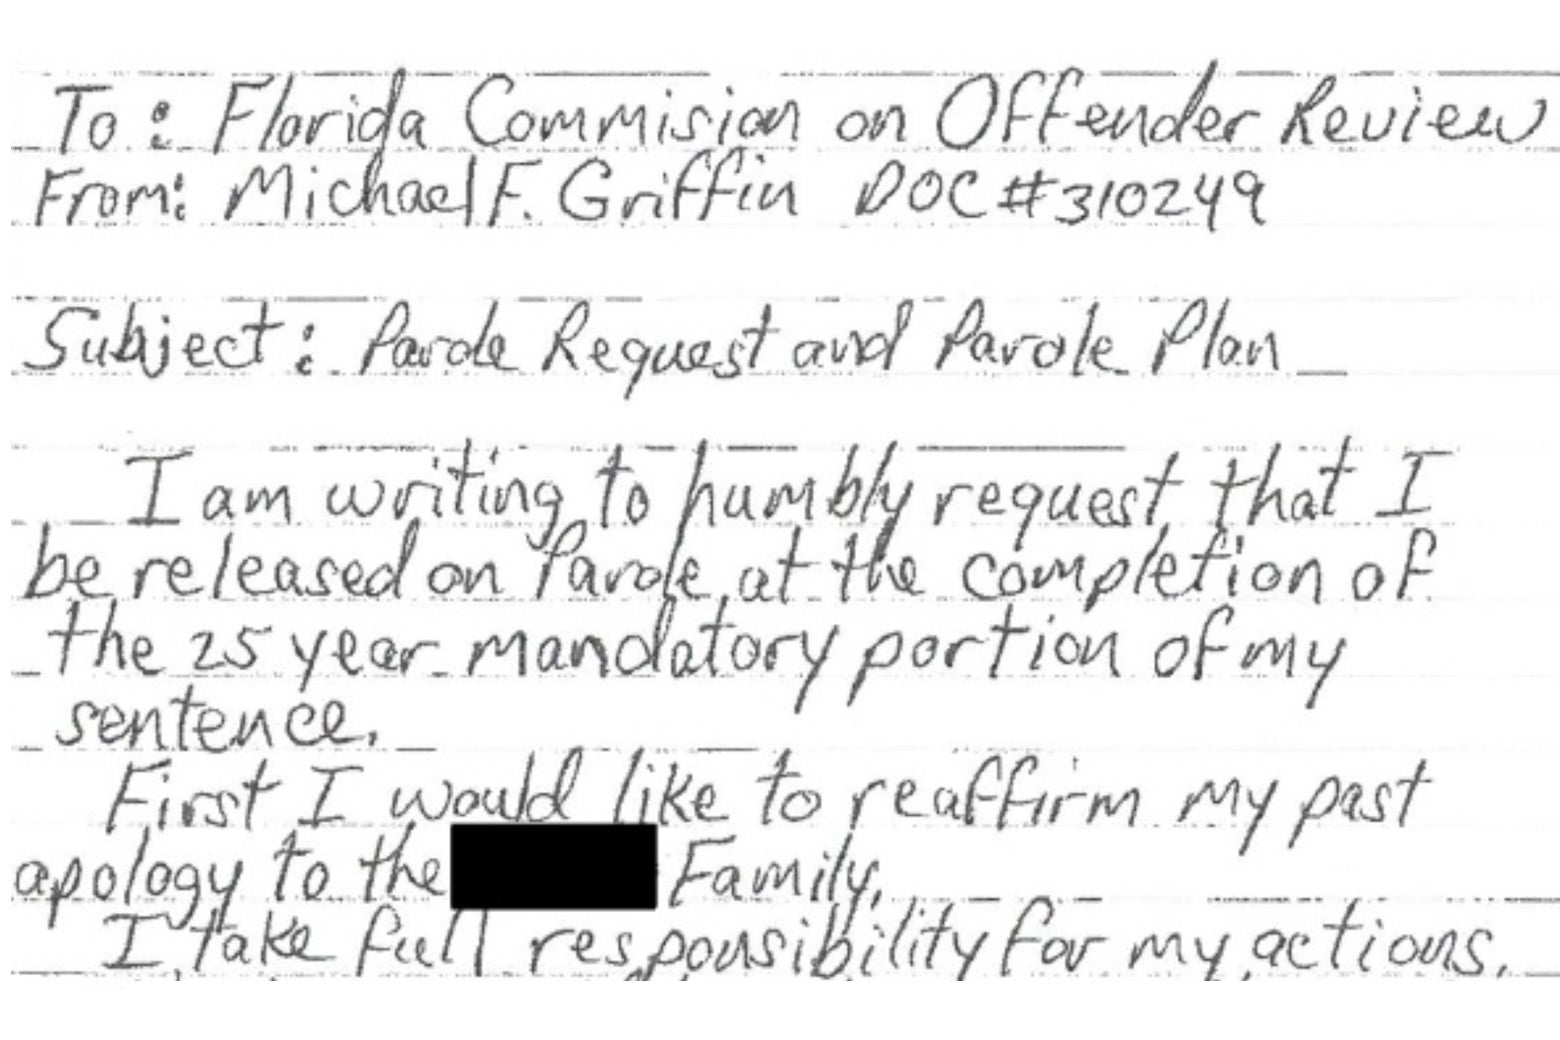 To: Florida Commision on Offender Review
From: Michael F. Griffin DOC #310249
Subject: Parole Request and Parole Plan
I am writing to humbly request that I
be released on Parole at the completion of
the 25 year mandatory portion of my
sentence.
First I would like to reaffirm my past
apology to the Family.
I take full responsibility for my actions.